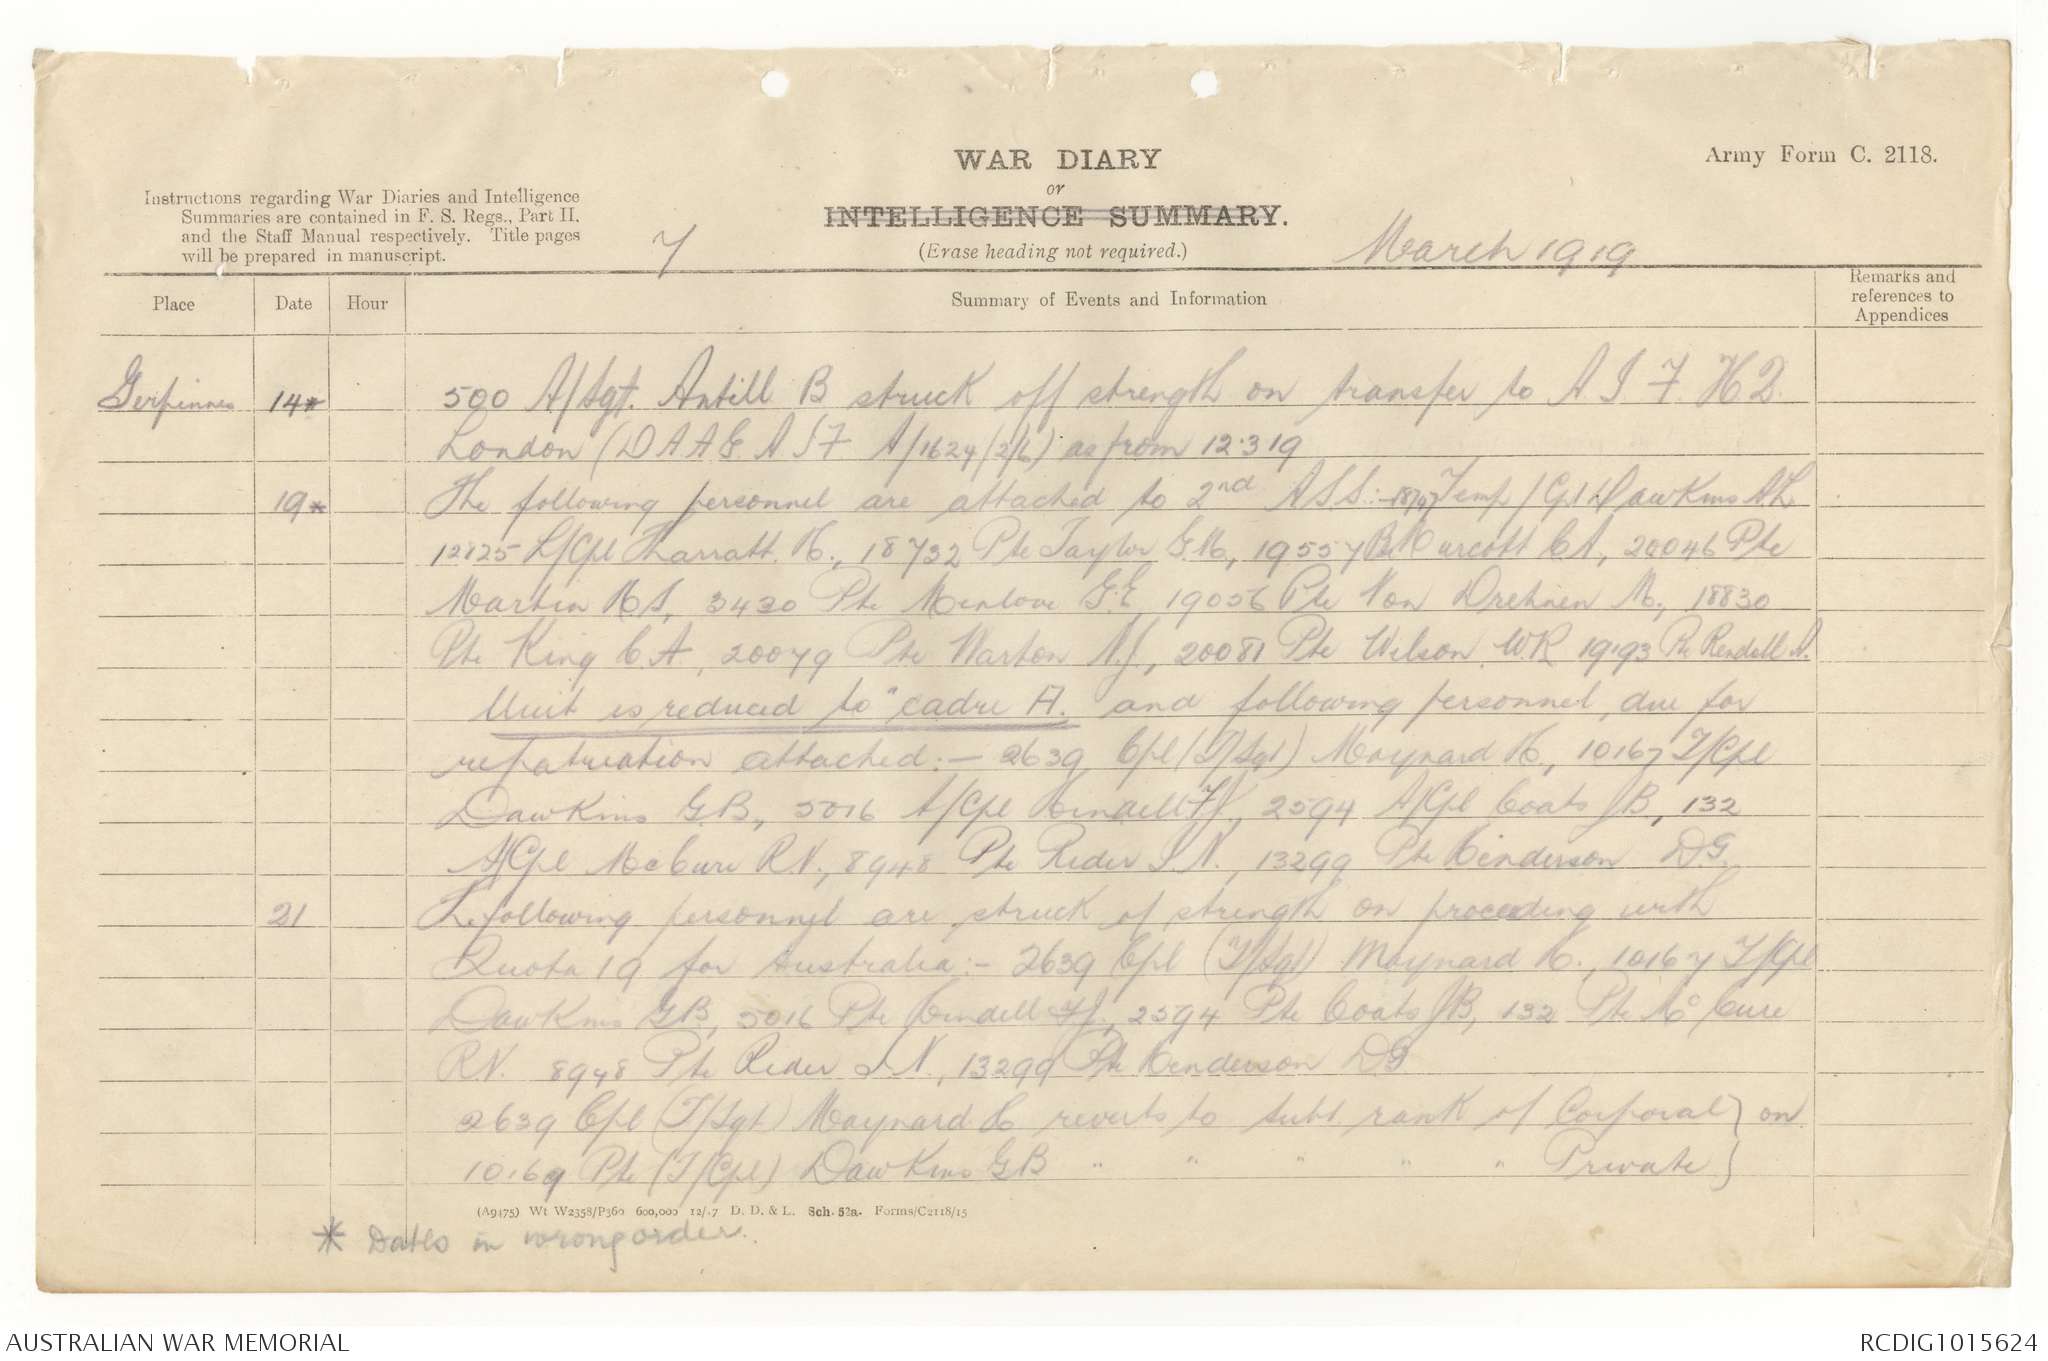 WAR DIARY
or
INTELLIGENCE SUMMARY.
(Erase heading not required.)
Army Form C. 2118.
Instructions regarding War Diaries and Intelligence
Summaries are contained in F. S. Regs., Part II.
and the Staff Manual respectively. Title pages
will be prepared in manuscript.
7
March 1919
Place
Date
Hour
Summary of Events and Information
Remarks and
references to
Appendices
Gerpinnes 14* 500 A/Sgt. Antill B struck off strength on transfer to A. I. F. H Q.
London (DAAG AIF A/1624/2/6) as from 12.3.19
19* The following personnel are attached to 2nd ASS:- Temp/Cpl Dawkins A.L.
12825 L/Cpl Tharratt. H., 18732 Pte Taylor G.H., 19557 Purcott CA, 20046 Pte
Martin H S, 3430 Pte Menlove G.E, 19056 Pte Von Drehnen M., 18830
Pte King C A, 20079 Pte Warton N.J., 20081 Pte Wilson WR 19193 Pte Rendell A.
Unit is reduced to "cadre A. and following personnel, due for
repatriation attached:- 2639 Cpl (T/Sgt) Maynard H., 10167 T/Cpl
Dawkins G.B., 5016 A/Cpl FJ., 2594 A/Cpl Coats JB, 132
A/Cpl McCure R.N., 8948 Pte Rider S.N., 13299 Pte Henderson D.G.
21 The following personnel are struck of strength on proceeding with
Quota 19 for Australia:- 2639 Cpl (T/Sgt) Maynard H., 10167 T/Cpl
Dawkins GB, 5016 Pte FJ., 2594 Pte Coats JB, 132 Pte Mc Cure
R.N. 8948 Pte Rider S.N., 13299 Pte Henderson DG
2639 Cpl (T/Sgt) Maynard H reverts to subt. rank of Corporal } on
10169 Pte (T/Cpl) Dawkins GB " " " " " Private }
(A9475) Wt W2358/P360 600,000 12/17 D. D. & L. Sch. 52a. Forms/C2118/15
* Dates in wrong order.
AUSTRALIAN WAR MEMORIAL
RCDIG1015624